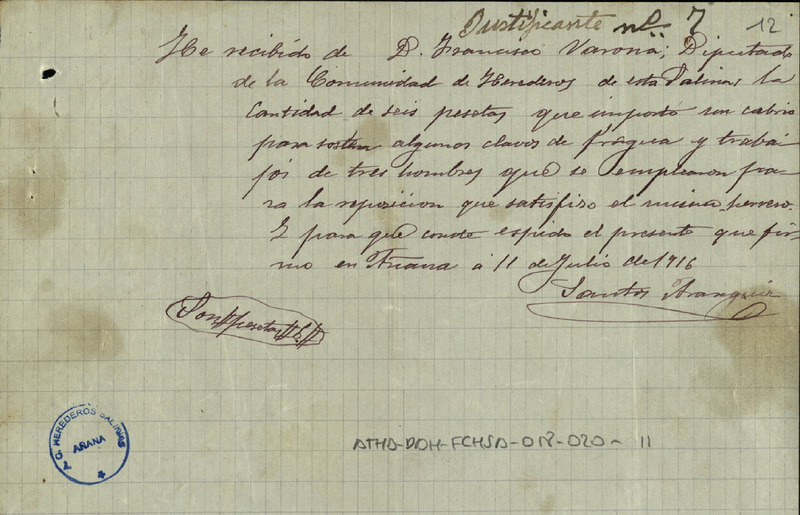 Justificante nº 7 12
He recibido de D. Francisco Varona; Diputado
de la Comunidad de Herederos de esta Salinas la
Cantidad de seis pesetas que importó un cabrio
para algunos clavos de fragua y traba-
jos de tres hombres que se emplearon pa-
ra la reposicion que satisfizo el misma herrero.
I para que conste espido el presente que fir-
mo en Añana á 11 de Julio de 1916
Santos Aranguiz
Son #pesetas #6#
T. C. HEREDEROS SALINAS
AÑANA
ATHA-DAH-FCHSA-018-020-11